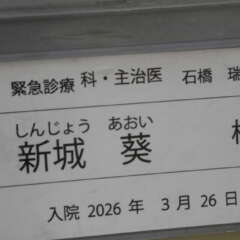 緊急診療 科・主治医 石橋 瑞
しんじょう あおい
新城 葵
入院 2026 年 3 月 26 日